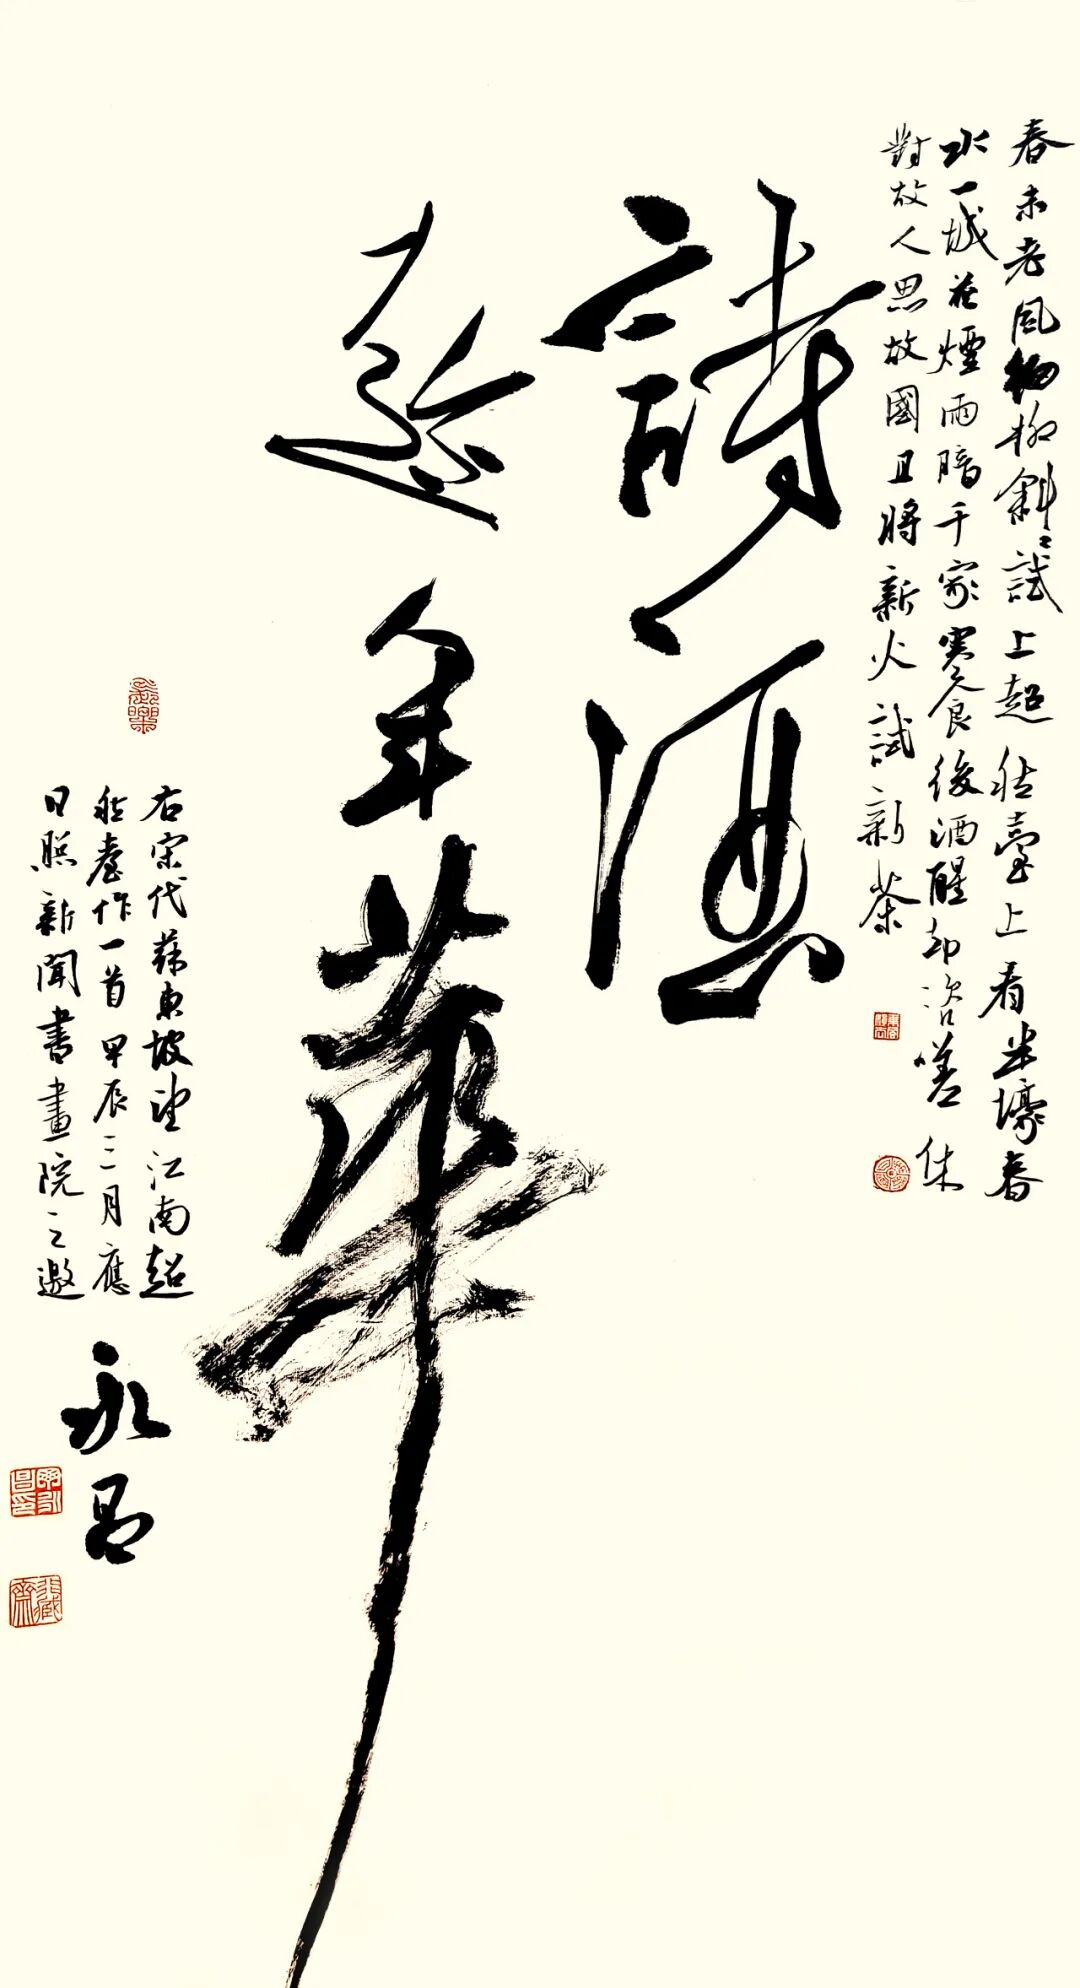 春未老風細柳斜〻試上超然臺上看半壕春
水一城花煙雨暗千家寒食後酒醒却咨嗟休
對故人思故國且將新火試新茶
詩酒
趁年華
右宋代蘇東坡望江南超
然臺作一首甲辰三月應
日照新聞書畫院之邀
永昌